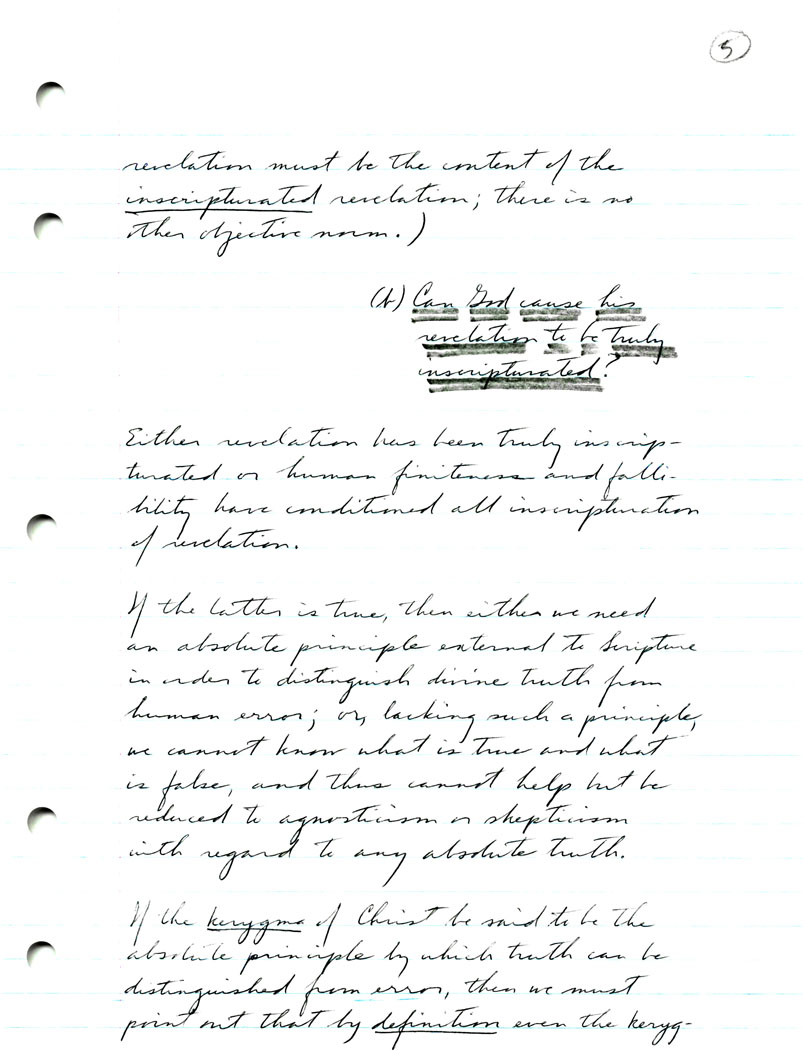 5
revelation must be the content of the
inscripturated revelation; there is no
other objective norm.)
(b) Can God cause his
revelation to be truly
inscripturated?
Either revelation has been truly inscrip-
turated or human finiteness and falli-
bility have conditioned all inscripturation
of revelation.
If the latter is true, then either we need
an absolute principle external to Scripture
in order to distinguish divine truth from
human error; or, lacking such a principle,
we cannot know what is true and what
is false, and thus cannot help but be
reduced to agnosticism or skepticism
with regard to any absolute truth.
If the kerygma of Christ be said to be the
absolute principle by which truth can be
distinguished from error, then we must
point out that by definition even the keryg-